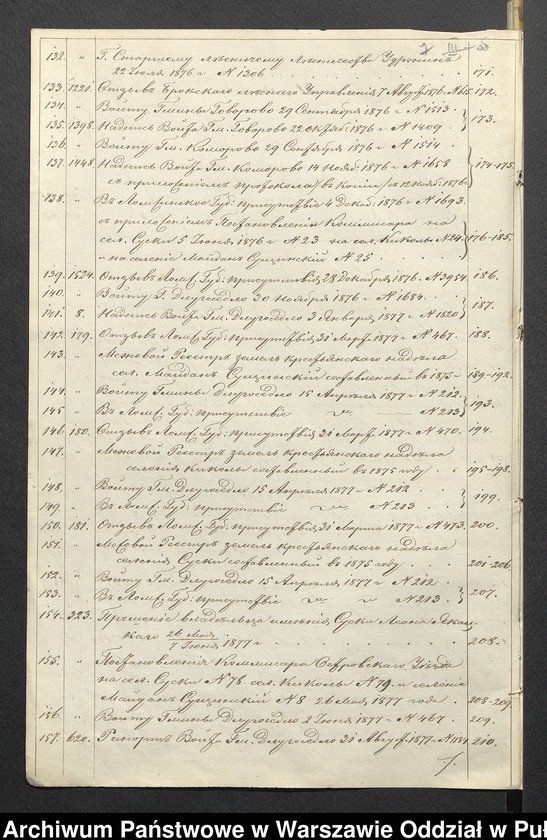 132. " Г. Старшему Лѣсничему Лѣсничества
22 Іюля 1876 г. N 1306. 171.
133. 1221 Отзывъ Лѣснаго Управленія 7 Август. 1876 172.
134. " Войту Гмины Говорово 29 Сентября 1876 г. N 1513.
135. 1398. Надпись Войта Гм. Говорово 22 Октяб. 1876 г. N 1409. 173.
136. " Войту Гм. Коморово 29 Сентября 1876 г. N 1514
137. 1448. Надпись Войта Гм. Коморово 14 Нояб. 1876 г. N 1658
съ приложеніемъ протокола въ копіи 174-175.
138. " Въ Ломжинское Губ. присутствіе 4 Декаб. 1876 г. N 1693.
съ приложеніемъ Постановленія Коммисара на
сел. Суски 5 Іюня 1876 г. N 23 на сел. Киколы N 24. 176-185.
и на селеніе Майданъ Сущинскій N 25
139. 1524. Отзывъ Ломж. Губ. присутствія 28 Декабря 1876 г. N 3954. 186.
140. " Войту Г. Длугоседло 30 Ноября 1876 г. N 1684.
141. 8. Надпись Войта Гм. Длугоседло 3 Января 1877 г. N 1820 187.
142. 179. Отзывъ Ломж. Губ. присутствія 31 Март. 1877 г. N 467. 188.
143. " Межевой Реестръ земель крестьянскаго надѣла
сел. Майданъ Сущинскій составленный въ 1875 г. 189-192.
144. " Войту Гмины Длугоседло 15 Апрѣля 1877 г. N 212.
145 " Въ Ломж. Губ. присутствіе N 213 193.
146 180. Отзывъ Ломж. Губ. присутствія 31 Март. 1877 г. N 470. 194.
147. " Межевой Реестръ земель крестьянскаго надѣла
селенія Киколы составленный въ 1875 году. 195-198.
148. " Войту Гм. Длугоседло 15 Апрѣля 1877 г. N 212
149. " Въ Ломж. Губ. присутствіе N 213 199.
150. 181. Отзывъ Ломж. Губ. присутствія 31 Марта 1877 г. N 473. 200.
151. " Межевой Реестръ земель крестьянскаго надѣла
селенія Суски составленный въ 1875 году. 201-206
152. " Войту Гм. Длугоседло 15 Апрѣля 1877 г. N 212
153. " Въ Ломж. Губ. присутствіе N 213 207.
154. 323. Прошеніе владѣльца имѣнія Суски
26 Мая / 7 Іюня 1877 г. 208.
155. " Постановленія Коммисара Островскаго Уѣзда
на сел. Суски N 78 сел. Киколы N 79 и селеніе
Майданъ Сущинскій N 8 26 Мая 1877 года. 208-209.
156. " Войту Гмины Длугоседло 2 Іюня 1877 г. N 467. 209.
157. 620. Рапортъ Войта Гм. Длугоседло 31 Август. 1877 г. N 1184 210.
Archiwum Państwowe w Warszawie Oddział w Puł